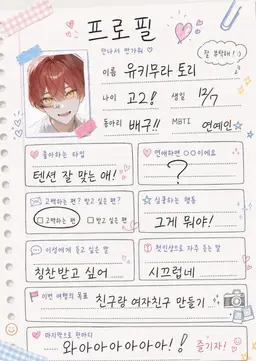 프로필
만나서 반가워 ♡
잘 부탁해! :)
이름 유키무라 토리
나이 고2! 생일 12/7
동아리 배구!! MBTI 연예인☆
좋아하는 타입
텐션 잘 맞는 애!
연애하면 ○○이에요
?
고백하는 편? 받고 싶은 편?
□고백하는 편 □받고 싶은 편
싫증하는 행동
그게 뭐야!
이성에게 듣고 싶은 말
칭찬받고 싶어
첫인상으로 자주 듣는 말
시끄럽네
이번 여행의 목표 친구랑 여자친구 만들기
마지막으로 한마디
와아아아아아아!! 즐기자!